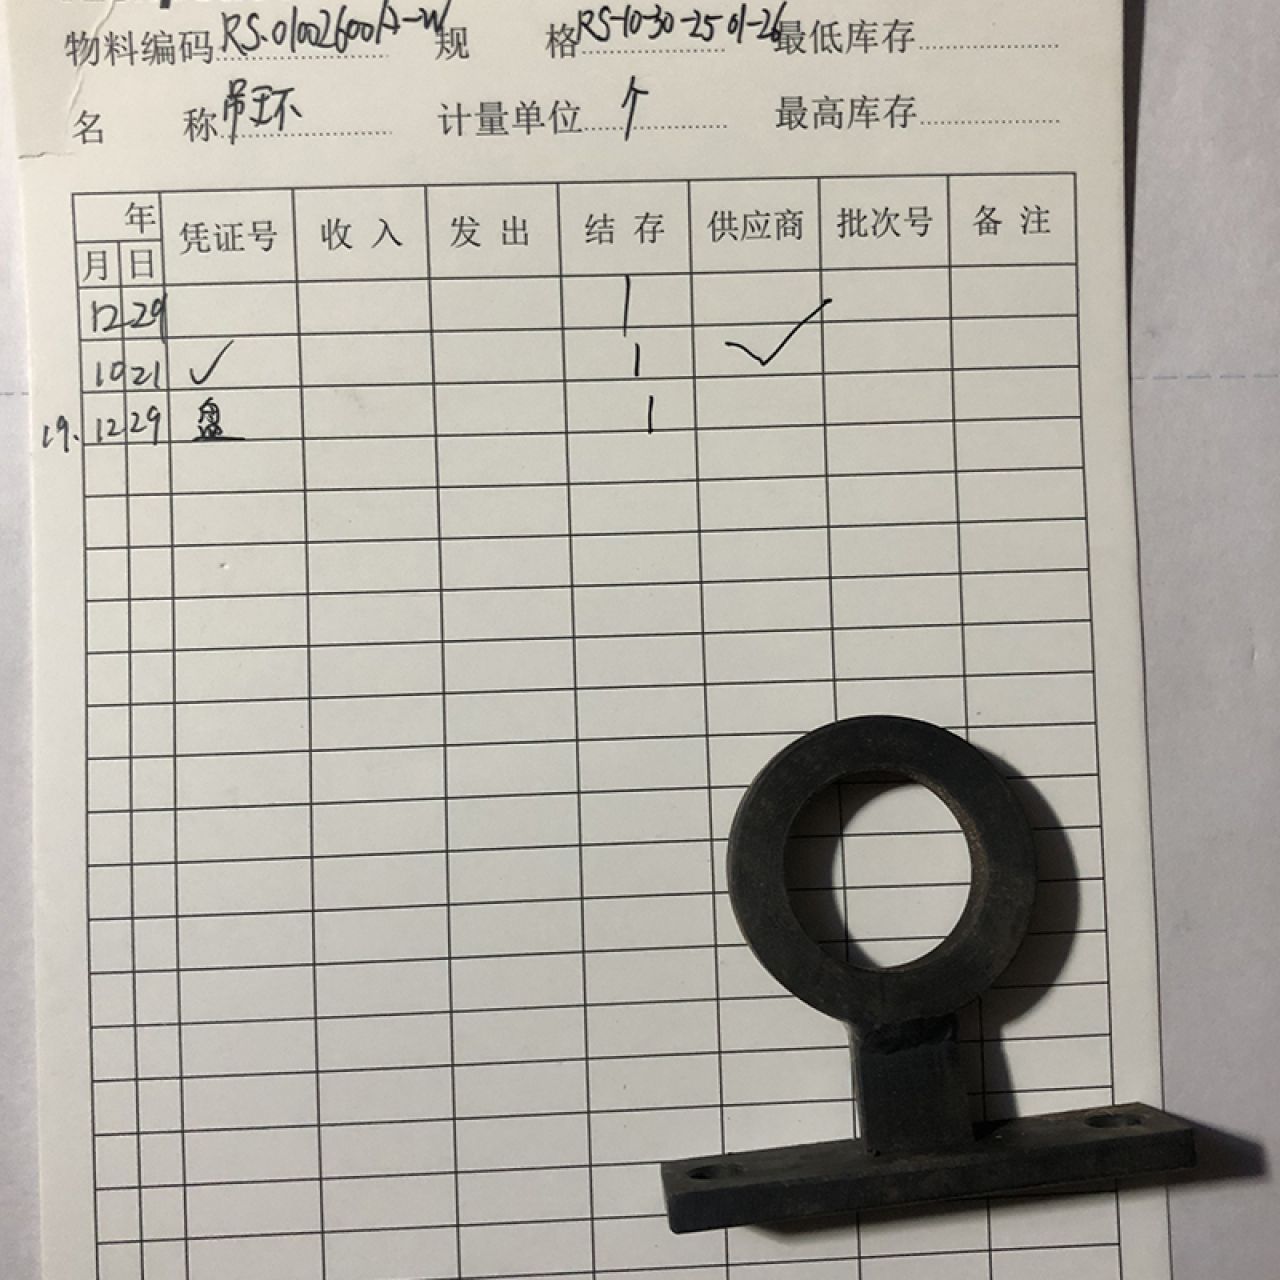 物料编码 RS.010026001A-W 规 格 RS-10-30-25 01-26 最低库存
名 称 吊环 计量单位 个 最高库存
年 凭证号 收入 发出 结存 供应商 批次号 备注
月 日
12 29 1
10 21 ✓ 1 ✓
19. 12 29 盘 1